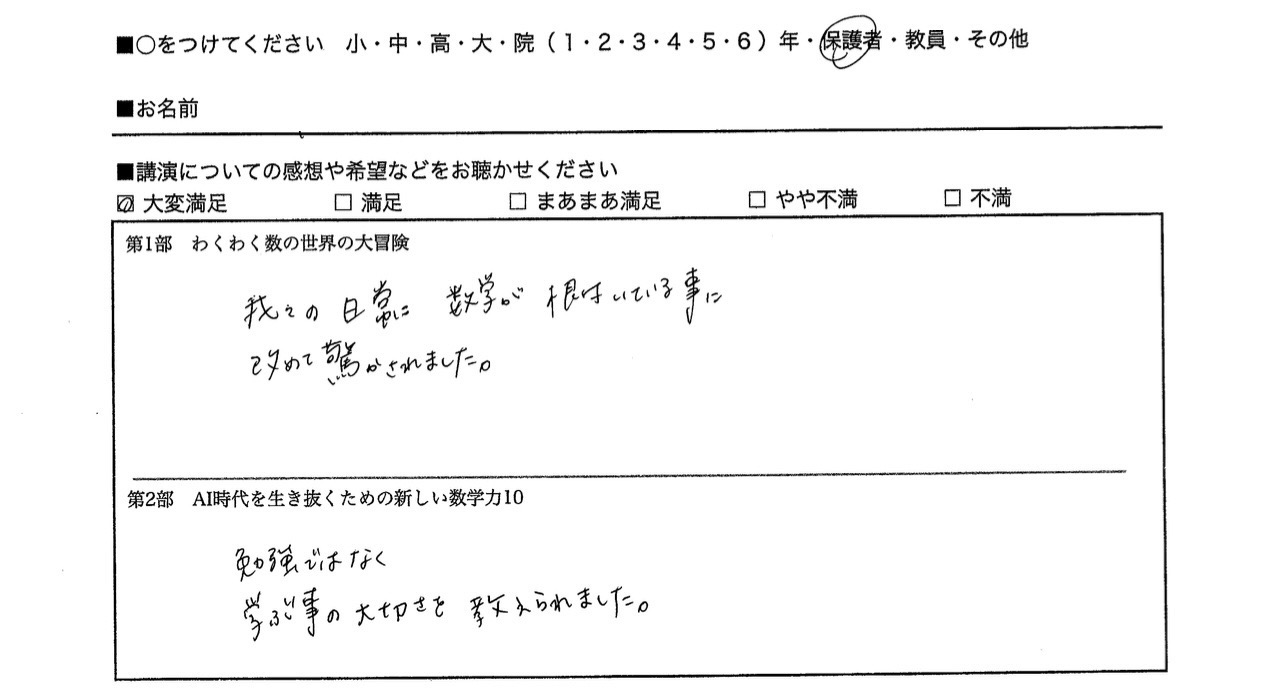 ■○をつけてください 小・中・高・大・院（1・2・3・4・5・6）年・保護者・教員・その他
■お名前
■講演についての感想や希望などをお聴かせください
☑ 大変満足 □ 満足 □ まあまあ満足 □ やや不満 □ 不満
第1部 わくわく数の世界の大冒険
我々の日常に 数学が 根付いている事に
改めて驚かされました。
第2部 AI時代を生き抜くための新しい数学力10
勉強ではなく
学ぶ事の大切さを 教えられました。